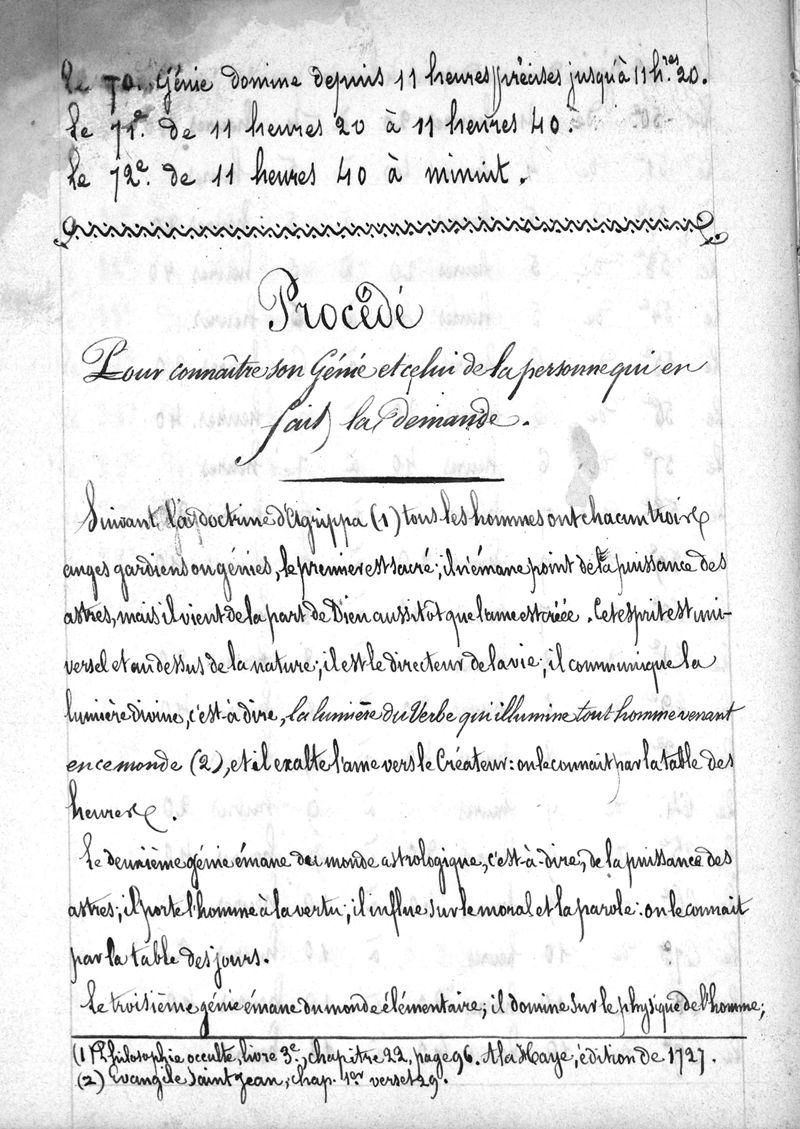 Le 70. Génie domine depuis 11 heures précises jusqu'à 11 h.res 20.
Le 71e. de 11 heures 20 à 11 heures 40.
Le 72e. de 11 heures 40 à minuit.
Procédé
Pour connaître son Génie et celui de la personne qui en
fait la demande.
Suivant la doctrine d'Agrippa (1) tous les hommes ont chacun trois
anges gardiens ou génies, le premier est sacré; il n'émane point de la puissance des
astres, mais il vient de la part de Dieu aussitôt que l'ame est créée. Cet esprit est uni-
versel et au dessus de la nature; il est le directeur de la vie; il communique la
lumière divine, c'est-à-dire, la lumière du Verbe qui illumine tout homme venant
en ce monde (2), et il exalte l'ame vers le Créateur: on le connait par la table des
heures.
Le deuxième génie émane du monde astrologique, c'est-à-dire, de la puissance des
astres; il porte l'homme à la vertu; il influe sur le moral et la parole: on le connait
par la table des jours.
Le troisième génie émane du monde élémentaire; il domine sur le physique de l'homme;
(1) Philosophie occulte, livre 3e., chapitre 22, page 96. A la Haye, édition de 1727.
(2) Evangile Saint Jean, chap. 1er verset 29.